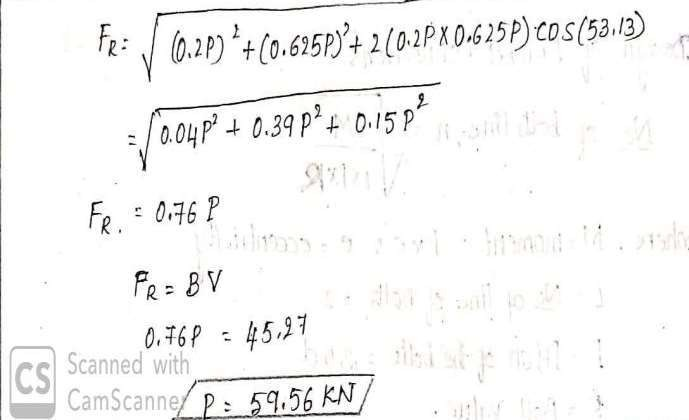 FR = √(0.2P)² + (0.625P)² + 2(0.2P X 0.625P) COS(53.13)
= √0.04P² + 0.39P² + 0.15P²
FR. = 0.76 P
FR = BV
0.76P = 45.27
CS Scanned with
CamScanner
P = 59.56 KN